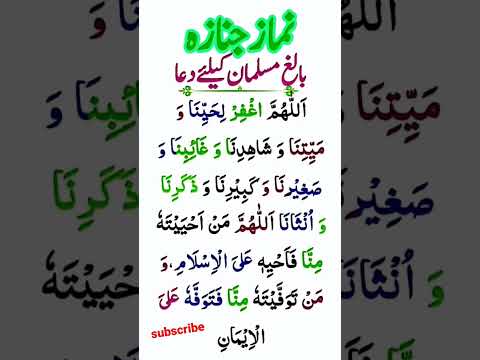 نماز جنازہ
بالغ مسلمان کیلئے دعا
اَللّٰهُمَّ اغْفِرْ لِحَيِّنَا وَ
مَيِّتِنَا وَ شَاهِدِنَا وَ غَائِبِنَا وَ
صَغِيْرِنَا وَ كَبِيْرِنَا وَ ذَكَرِنَا
وَ اُنْثَانَا اَللّٰهُمَّ مَنْ اَحْيَيْتَهٗ
مِنَّا فَاَحْيِهٖ عَلَى الْاِسْلَامِ، وَ
مَنْ تَوَفَّيْتَهٗ مِنَّا فَتَوَفَّهٗ عَلَى
الْاِيْمَانِ
subscribe